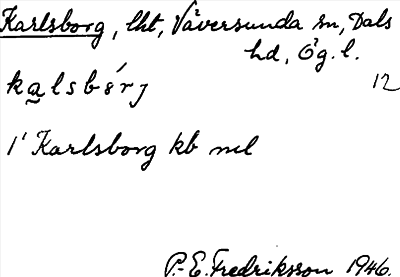 Karlsborg, lht, Väversunda sn, Dals
hd, Ög. l.
kalsbórj 12
1' Karlsborg kb ml
P.-E. Fredriksson 1946.